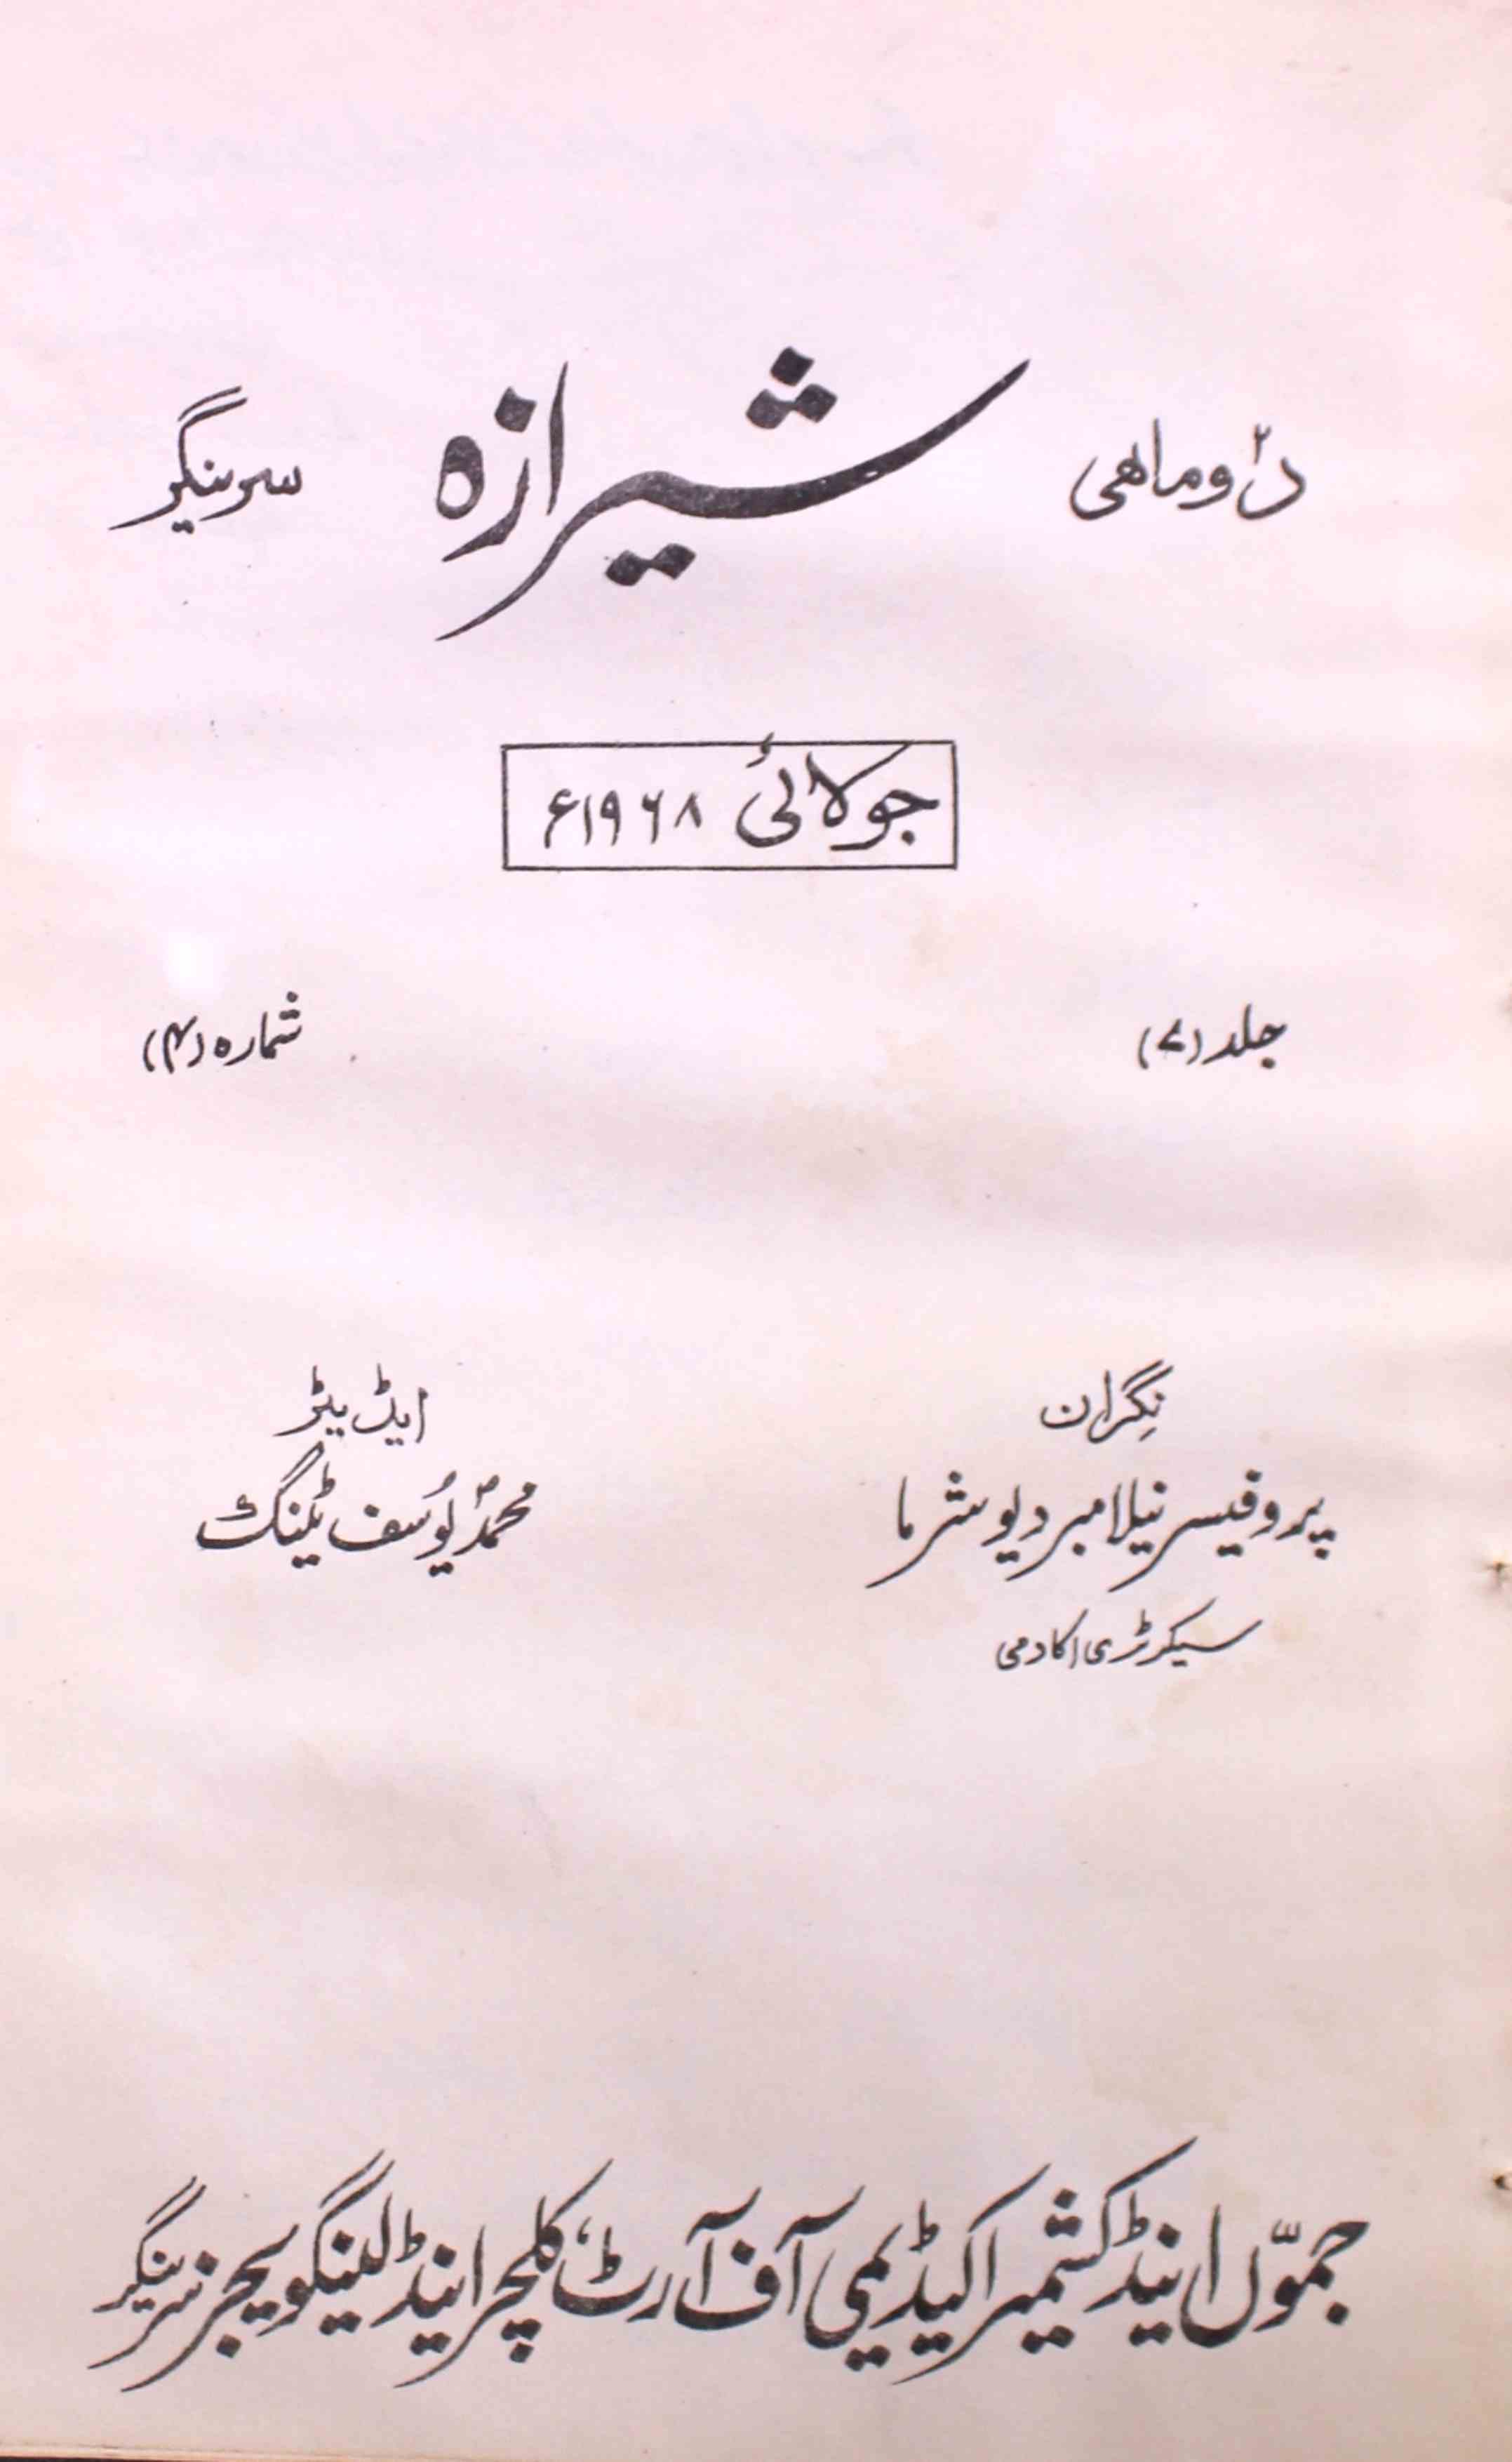 دو ماہی شیرازہ سرینگر
جولائی ۱۹۶۸ء
جلد (۷) شمارہ (۴)
نِگران ایڈیٹر
پروفیسر نیلامبر دیو شرما محمدؐ یُوسف ٹینگ
سیکرٹری اکادمی
جموّں اینڈ کشمیر اکیڈیمی آف آرٹ، کلچر اینڈ لینگویجز سرینگر